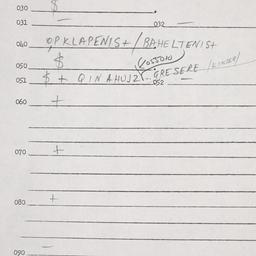 030 $
031 — 032 —
040 OPKLAPENIST / BAHELTENIST
050 $ (COSSOIO)
051 $ + QINAHUJZ... GRESERE /KINSER/
052
060 +
070 +
080 +
090 —